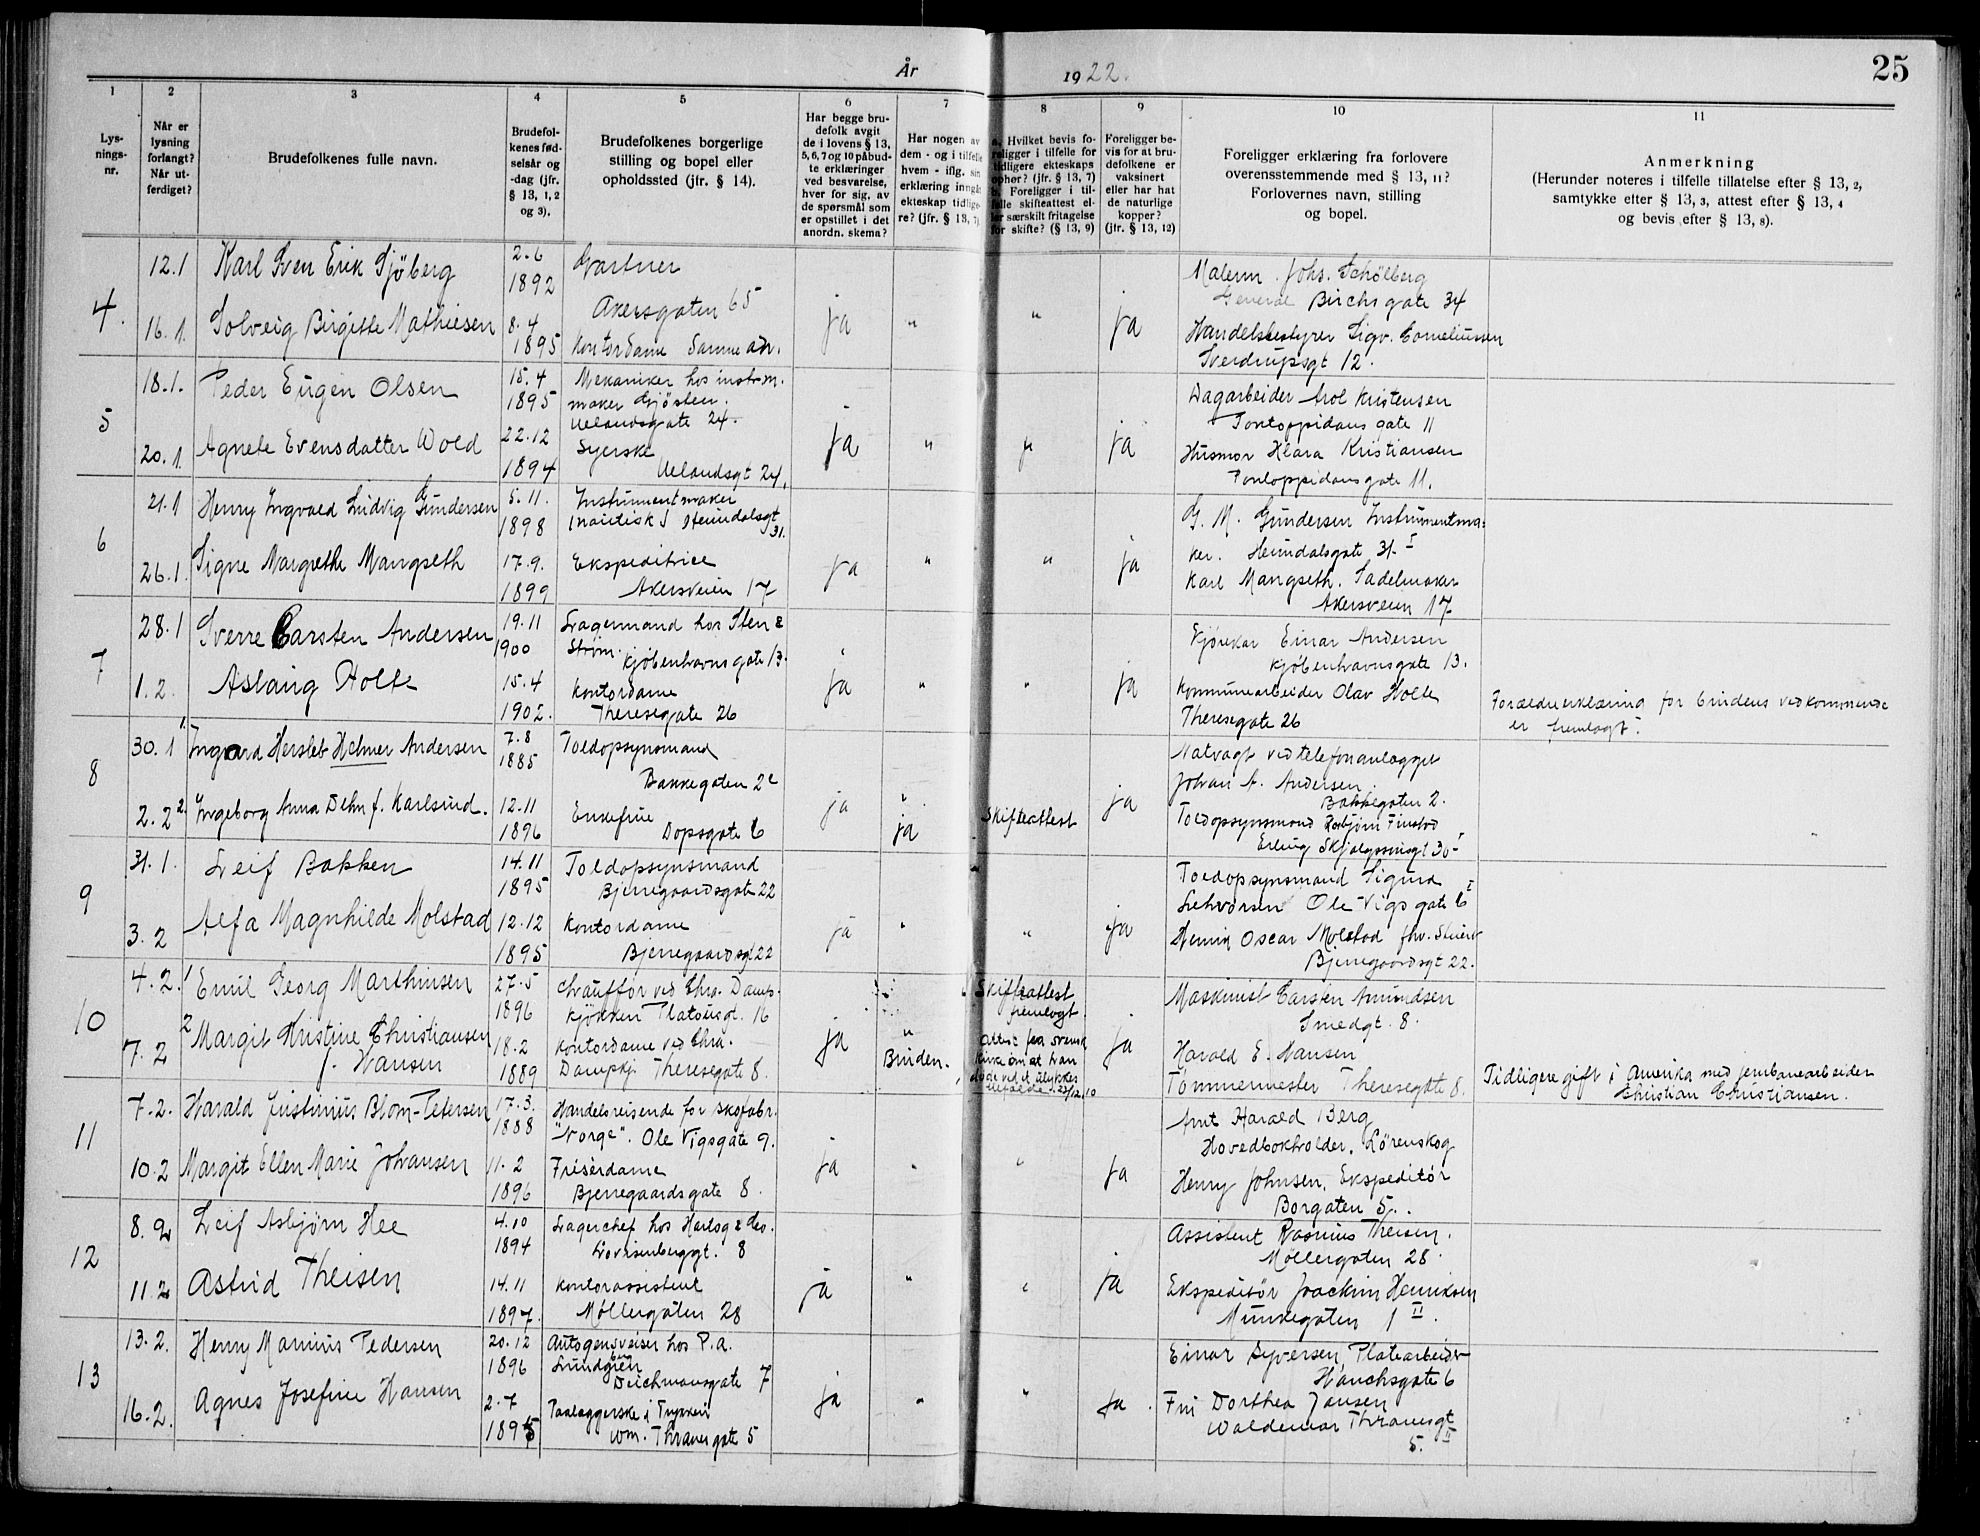 År 1922.
25
1
2
3
4
5
6
7
8
9
10
11
Lys-
nings-
nr.
Når er
lysning
forlangt?
Når ut-
ferdiget?
Brudefolkenes fulle navn.
Brudefol-
kenes fød-
selsår og
-dag (jfr.
§ 13, 1, 2
og 3).
Brudefolkenes borgerlige
stilling og bopel eller
opholdssted (jfr. § 14).
Har begge bru-
defolk avgit
de i lovens § 13,
5, 6, 7 og 10 påbud-
te erklæringer
ved besvarelse,
hver for sig, av
de spørsmål som
er opstillet i det
anordn. skema?
Har nogen av
dem - og i tilfelle
hvem - iflg. sin
erklæring inngåt
ekteskap tidlige-
re? (jfr. § 13, 7)
a. Hvilket bevis fo-
religger i tilfelle for
tidligere ekteskaps
ophør? (jfr. § 13, 7)
b. Foreligger i til-
felle skifteattest el-
ler særskilt fritagelse
for skifte? (§ 13, 9)
Foreligger be-
vis for at bru-
defolkene er
vaksinert
eller har hat
de naturlige
kopper?
(jfr. § 13, 12)
Foreligger erklæring fra forlovere
overensstemmende med § 13, 11?
Forlovernes navn, stilling
og bopel.
Anmerkning
(Herunder noteres i tilfelle tillatelse efter § 13, 2,
samtykke efter § 13, 3, attest efter § 13, 4
og bevis efter § 13, 8).
4.
12.1
Karl Sven Erik Sjöberg
2.6
1892
Gartner
Akersgaten 65
16.1.
Solveig Birgitte Mathiesen
8.4
1895
Kontordame Samme adr.
ja
"
"
ja
Malerm. Johs. Schölberg
General Birchs gate 34
Handelsbestyrer Sigv. Corneliussen
Sverdrupsgt 12.
5
18.1.
Peder Eugen Olsen
15.4
1895
Mekaniker hos instrm.
maker Gjösten.
Uelandsgate 24.
20.1.
Agnete Evensdatter Wold
22.12
1894
Syerske
Uelandsgt 24.
ja
"
"
ja
Dagarbeider Arol Kristensen
Pontoppidans gate 11
Husmor Klara Kristiansen
Pontoppidans gate 11.
6
21.1
Henry Ingvald Ludvig Gundersen
5.11.
1898
Instrumentmaker
Heimdalsgt
31.
26.1.
Signe Margrethe Mangseth
17.9.
1899
Ekspeditrice
Akersveien 17
ja
"
"
ja
G. M. Gundersen Instrumentma-
ker. Heimdalsgate 31. I
Karl Mangseth. Sadelmaker
Akersveien 17.
7
28.1
Sverre Carsten Andersen
19.11
1900
Lagermand hos Sten &
Ström. Kjöbenhavns gate 13.
1.2.
Aslaug Holte
15.4
1902.
Kontordame
Theresegate 26
ja
"
"
ja
Kjörekar Einar Andersen
Kjöbenhavnsgate 13.
Kommunearbeider Olav Holte
Theresegate 26
Forældreerklæring for brudens vedkommende
er fremlagt.
8
30.1
1. Ingvard Hersleb Helmer Andersen
7.8
1885
Toldopsynsmand
Bakkegaten 2c
2.2
2. Ingeborg Anna Dehn f. Karlsund.
12.11
1896
Enkefrue
Dopsgate 6
ja
"
ja
Skifteattest
ja
Natvagt ved telefonanlægget
Johan A. Andersen.
Bakkegaten 2.
Toldopsynsmand Asbjörn Finstad
Erling Skjalgssonsgt 30 I
9
31.1.
Leif Bakken
14.11
1895
Toldopsynsmand
Bjerregaardsgate 22
3.2
Alfa Magnhilde Molstad
12.12
1895
Kontordame
Bjerregaardsgt 22
ja
"
"
ja
Toldopsynsmand Sigurd
Ole Vigs gate 6 I
Oscar Molstad fhv.
Bjerregaardsgt 22.
10
4.2.
1 Emil Georg Marthinsen
27.5
1896
Chauffør ved Chra. Damp-
kjökken Platousgt. 16
7.2
2 Margit Kristine Christiansen
f. Hansen
18.2
1889
Kontordame ved Chra.
Dampkj. Theresegate 8.
ja
"
Bruden.
Skifteattest
fremlagt.
Attest fra svensk
kirke om at han
døde ved et ulykkes
tilfælde 23/12.10
ja
Maskinist Carsten Amundsen
Smedgt. 8.
Harald E. Hansen
Tömmermester Theresegate 8.
Tidligere gift i Amerika med jernbanearbeider
Christian Christiansen.
11
7.2.
Harald Justinius Blom-Petersen
17.3.
1888
Handelsreisende for skofabr.
"Norge". Ole Vigsgate 9.
10.2
Margit Ellen Marie Johansen
11.2
1896
Frisérdame
Bjerregaards gate 8.
ja
"
"
ja
Arnt Harald Berg
Hovedbokholder, Lörenskog
Henry Johnsen, Ekspeditör
Borgaten 5..
12
8.2
Leif Asbjørn Hee
4.10
1894
Lagerchef hos
Lovisenberggt. 8
11.2
Astrid Theisen
14.11
1897.
Kontorassistent
Möllergaten 28
ja
"
"
ja
Assistent Rasmus Theisen.
Møllergaten 28.
Ekspeditör Joachim Henriksen
Munkegaten 1 II.
13
13.2.
Henry Marius Pedersen
20.12
1896
Autogensveiser hos P.A.
Lundgren
Deichmansgate 7
16.2.
Agnes Josefine Hansen
2.7
1895
Paalæggerske i Trykkeri
Wm. Thranes gate 5
ja
"
"
ja.
Einar Syversen, Platearbeider
Hauchsgate 6
Fru Dorthea Jansen
Waldemar Thranesgt
5. II